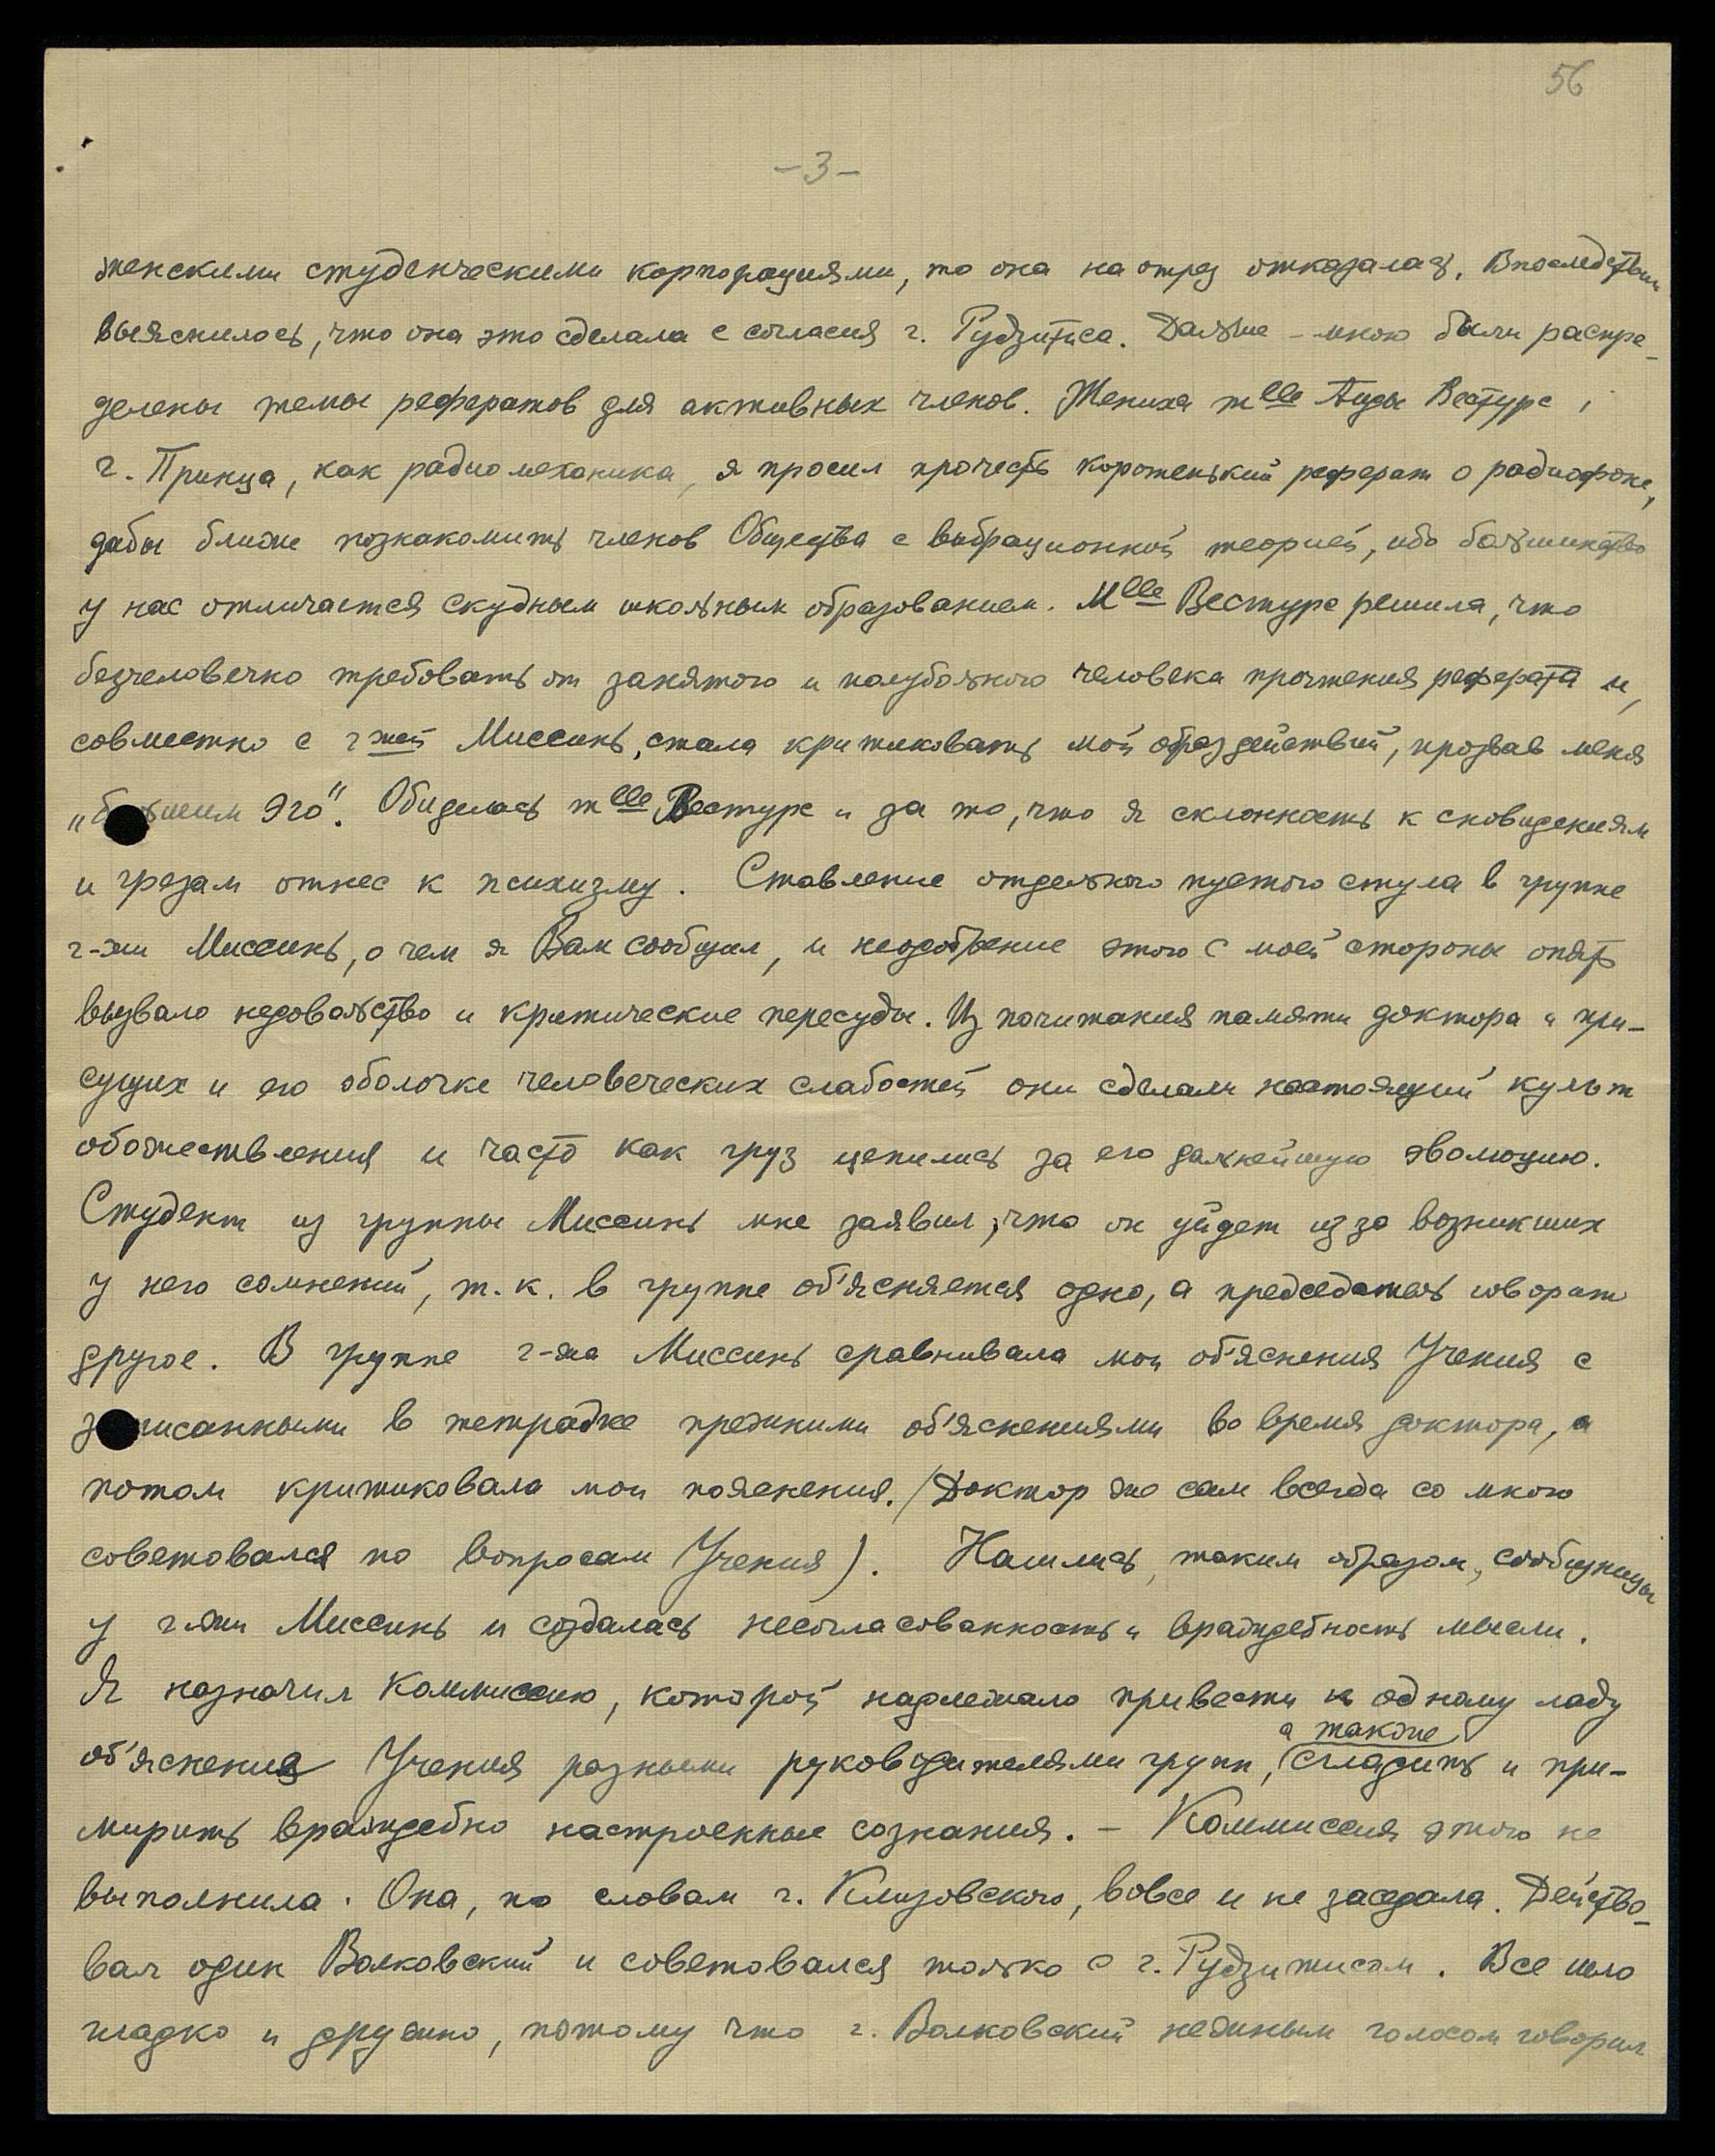 56
-3-
женскими студенческими корпорациями, то она на отрез отказалась. Впоследствии
выяснилось, что она это сделала с согласия г. Рудзитиса. Дальше - мною были распре-
делены темы рефератов для активных членов. Жениха mlle Аиды Вестурс,
г. Принца, как радиомеханика, я просил прочесть коротенький реферат о радиофоне,
дабы ближе познакомить членов Общества с вибрационной теорией, ибо большинство
у нас отличается скудным школьным образованием. Mlle Вестурс решила, что
безчеловечно требовать от занятого и полубольного человека прочтения реферата и,
совместно с г-жей Миссинь, стала критиковать мой образ действий, прозвав меня
„большим Эго". Обиделась mlle Вестурс и за то, что я склонность к сновидениям
и грезам отнес к психизму. Ставление отдельного пустого стула в группе
г-жи Миссинь, о чем я Вам сообщил, и неодобрение этого с моей стороны опять
вызвало недовольство и критические пересуды. Из почитания памяти доктора и при-
сущих и его оболочке человеческих слабостей они сделали настоящий культ
обожествления и часто как груз цепились за его дальнейшую эволюцию.
Студент из группы Миссинь мне заявил, что он уйдет из за возникших
у него сомнений, т. к. в группе об'ясняется одно, а председатель говорит
другое. В группе г-жа Миссинь сравнивала мои об'яснения Учения с
записанными в тетрадке прежними об'яснениями во время доктора, а
потом критиковала мои пояснения. /Доктор же сам всегда со мною
советовался по вопросам Учения). Нашлись, таким образом, сообщницы
у г-жи Миссинь и создалась несогласованность и враждебность мысли.
Я назначил Коммиссию, которой надлежало привести к одному ладу
об'яснения Учения разными руководителями групп, а также сгладить и при-
мирить враждебно настроенные сознания. - Коммиссия этого не
выполнила. Она, по словам г. Клизовского, вовсе и не заседала. Действо-
вал один Валковский и советовался только с г. Рудзитисом. Все шло
гладко и дружно, потому что г. Валковский нежным голосом говорил